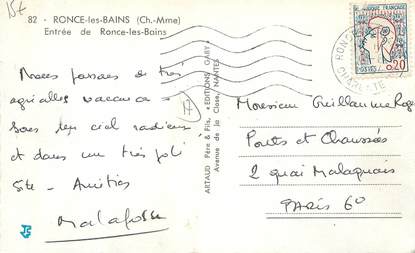 15€
82 - RONCE-les-BAINS (Ch.-Mme)
Entrée de Ronce-les-Bains
Nous passons de très
agréables vacances
sous un ciel radieux
et dans un très joli
site - Amitiés
Malafosse
17
ARTAUD Père & Fils, «EDITIONS GABY»
Avenue de la Close, NANTES
RÉPUBLIQUE FRANÇAISE
POSTES 0,20
RONCE
CHARENTE
Monsieur Guillaume Roge
Ponts et Chaussées
2 quai Malaquais
PARIS 6e